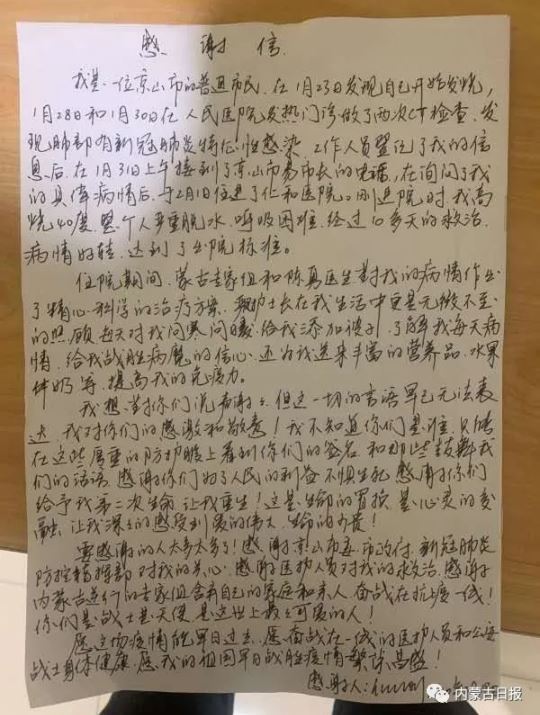 感谢信
我是一位京山市的普通市民,在1月23日发现自己开始发烧,
1月28日和1月30日在人民医院发热门诊做了两次CT检查,发
现肺部有新冠肺炎特征性感染,工作人员登记了我的信
息后,在1月31日上午接到了京山市市长的电话,在询问了我
的具体病情后,于2月1日住进了仁和医院。刚进院时,我高
烧40度,整个人严重脱水,呼吸困难,经过10多天的救治,
病情好转,达到了出院标准。
住院期间,蒙古专家组和陈真医生对我的病情作出
了精心科学的治疗方案,护士长在我生活中更是无微不至
的照顾,每天对我问寒问暖,给我添加被子,了解我每天病
情,给我战胜病魔的信心,还为我送来丰富的营养品,水果
牛奶等,提高我的免疫力。
我想对你们说声谢谢,但这一切的言语早已无法表
达,我对你们的感激和敬意!我不知道你们是谁,只能
在这些厚重的防护服上看到你们的签名,和那些鼓舞我
们的话语,感谢你们为了人民的利益不惧生死,感谢你们
给予我第二次生命,让我重生!这是生命的置换,是心灵的交
融,让我深深的感受到爱的伟大,生命的可贵!
要感谢的人太多太多了!感谢京山市委、市政府、新冠肺炎
防控指挥部对我的关心,感谢医护人员对我的救治,感谢
内蒙古逆行的专家组舍弃自己的家庭和亲人,奋战在抗疫一线!
你们是战士是天使,是这世上最可爱的人!
愿这场疫情能早日过去,愿奋战在一线的医护人员和公安
战士身体健康,愿我的祖国早日战胜疫情,繁荣昌盛!
感谢人:
内蒙古日报